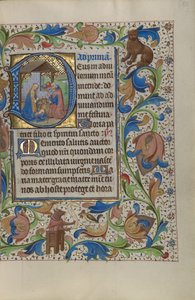 Ad primā
Deus in adiu
torium meū
intende: do
mine ad ad
iuuandum
me festina
Gloria pa
tri et filio et spiritui sancto
Memento salutis auctor
quod nostri quondam cor
poris ex illibata uirgine nasce
do formam sumpseris
Maria mater gratie mater mie tu
nos ab hoste protege et hora